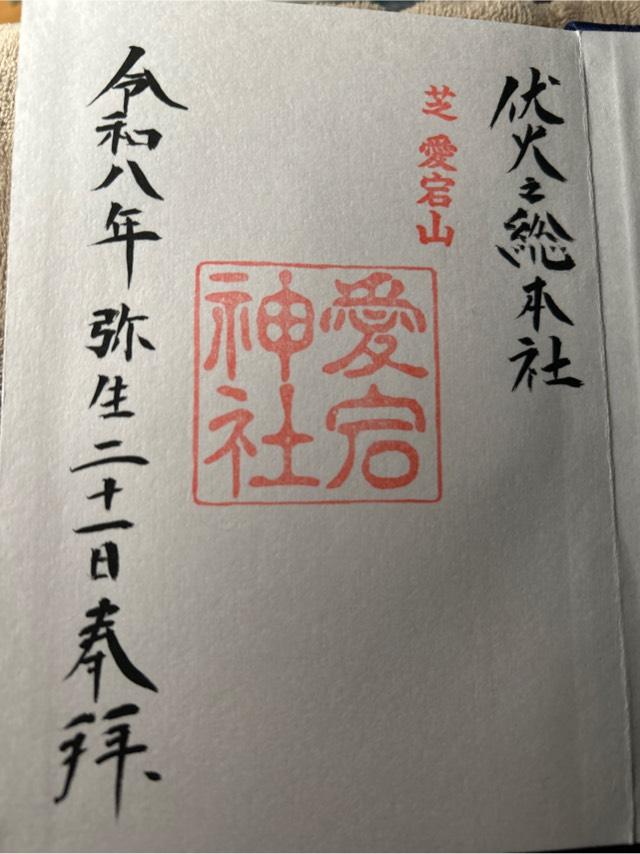 伏火之総本社
芝 愛宕山
愛宕
神社
令和八年 弥生二十一日奉拝